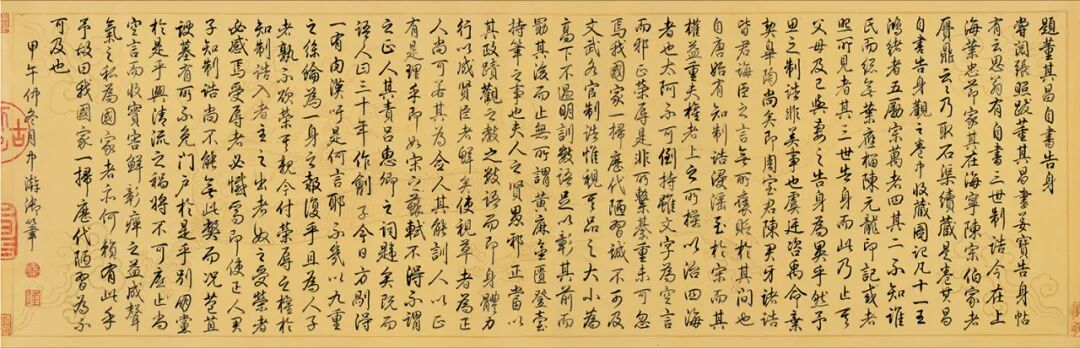 題董其昌自書告身
嘗閱張照跋董其昌書姜寶告身帖
有云思翁有自書三世制誥今在上
海業忠節家其在海寧陳宗伯家者
贗鼎云云乃取石渠續藏是卷其昌
自書告身觀之卷中收藏圖記凡十一
鴻緒者五勵宗萬者四其二不知誰
氏而總無業應榴陳元龍印記或者
照所見者其三世告身而此乃止其
父母及己與妻之告身為異乎然予
思之制誥非美事也虞廷咨禹命棄
契皋陶尚矣即周室君陳君牙諸誥
皆君誨臣之言無所褒貶於其間也
自唐始有知制誥浸淫至於宋而其
權益重夫權者上之所操以治四海
者也太阿不可倒持雖文字為空言
而邪正榮辱是非所繫甚重未可忽
焉我國家一掃歷代陋習誠不可及
文武各官制誥惟視其品之大小為
高下不過明訓數語足以彰其前而
勗其後而止無所謂黃麻金匱登臺
持筆之事也夫人之賢愚邪正當以
其政蹟觀之教之數語而即身體力
行以成賢臣者鮮矣使視草者為正
人尚可若其為僉人其能訓人以正
有是理乎即如宋之蘇軾不得不謂
之正人其責呂惠卿之詞矣既而
語人曰三十年作劊子今日方剮得
一有肉漢吁是何言耶不幾以九重
之絲綸為一身之報復乎且為人子
者孰不欲榮其親今付榮辱之權於
知制誥入者主之出者奴之受榮者
必感焉受辱者必憾焉即使正人君
子知制誥尚不能無此弊而況苞苴
諛墓有所不免門戶於是乎別國黨
於是乎興清流之禍將不可底止尚
空言而收實害鮮彰癉之益成聲
氣之私為國家者亦何賴有此乎
予故曰我國家一掃歷代陋習為不
可及也
甲午仲冬月中澣御筆